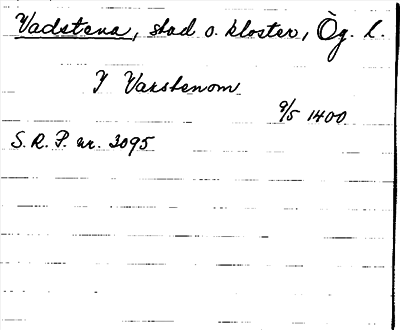 Vadstena, stad o. kloster, Ög. l.
I Vakstenom
9/5 1400
S. R. P. nr. 3095